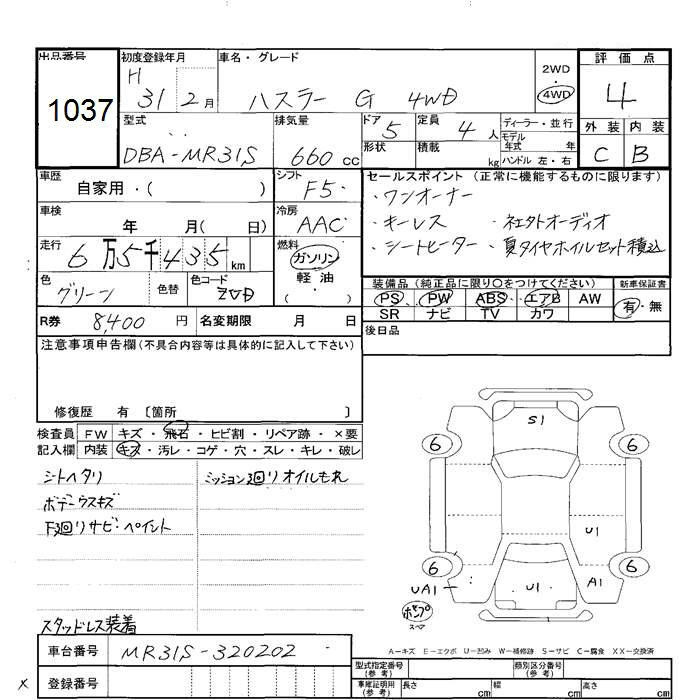 出品番号 1037
初度登録年月 H 31 2月
車名・グレード ハスラー G 4WD
2WD 4WD
評価点 4
外装 C 内装 B
型式 DBA-MR31S
排気量 660 cc
ドア 5
形状
定員 4人
積載 kg
ディーラー・並行
モデル年式 年式
ハンドル 左・右
車歴 自家用・( )
シフト F5
車検 年 月( 日)
冷房 AAC
走行 6万5千435km
燃料 ガソリン 軽油 ( )
色 グリーン 色替 色コード ZVD
R券 8,400円 名変期限 月 日
セールスポイント (正常に機能するものに限ります)
・ワンオーナー
・キーレス ・社外オーディオ
・シートヒーター ・夏タイヤホイルセット積込
装備品 (純正品に限り○をつけてください) 新車保証書
PS PW ABS エアB AW 有・無
SR ナビ TV カワ
後日品
注意事項申告欄 (不具合内容等は具体的に記入して下さい)
修復歴 有 〔箇所 〕
検査員記入欄
FW キズ・飛石・ヒビ割・リペア跡・×要
内装 キズ・汚レ・コゲ・穴・スレ・キレ・破レ
シートヘタリ ミッション廻りオイルもれ
ボデーウスキズ
下廻りサビ・ペイント
スタッドレス装着
S1
6 6
U1
6 6
UA1 U1 A1
ポンプ
スペア
A-キズ E-エクボ U-凹み W-補修跡 S-サビ C-腐食 XX-交換済
車台番号 MR31S-320202
× 登録番号
型式指定番号(参考) 類別区分番号(参考)
車庫証明用(参考) 長さ cm 幅 cm 高さ cm